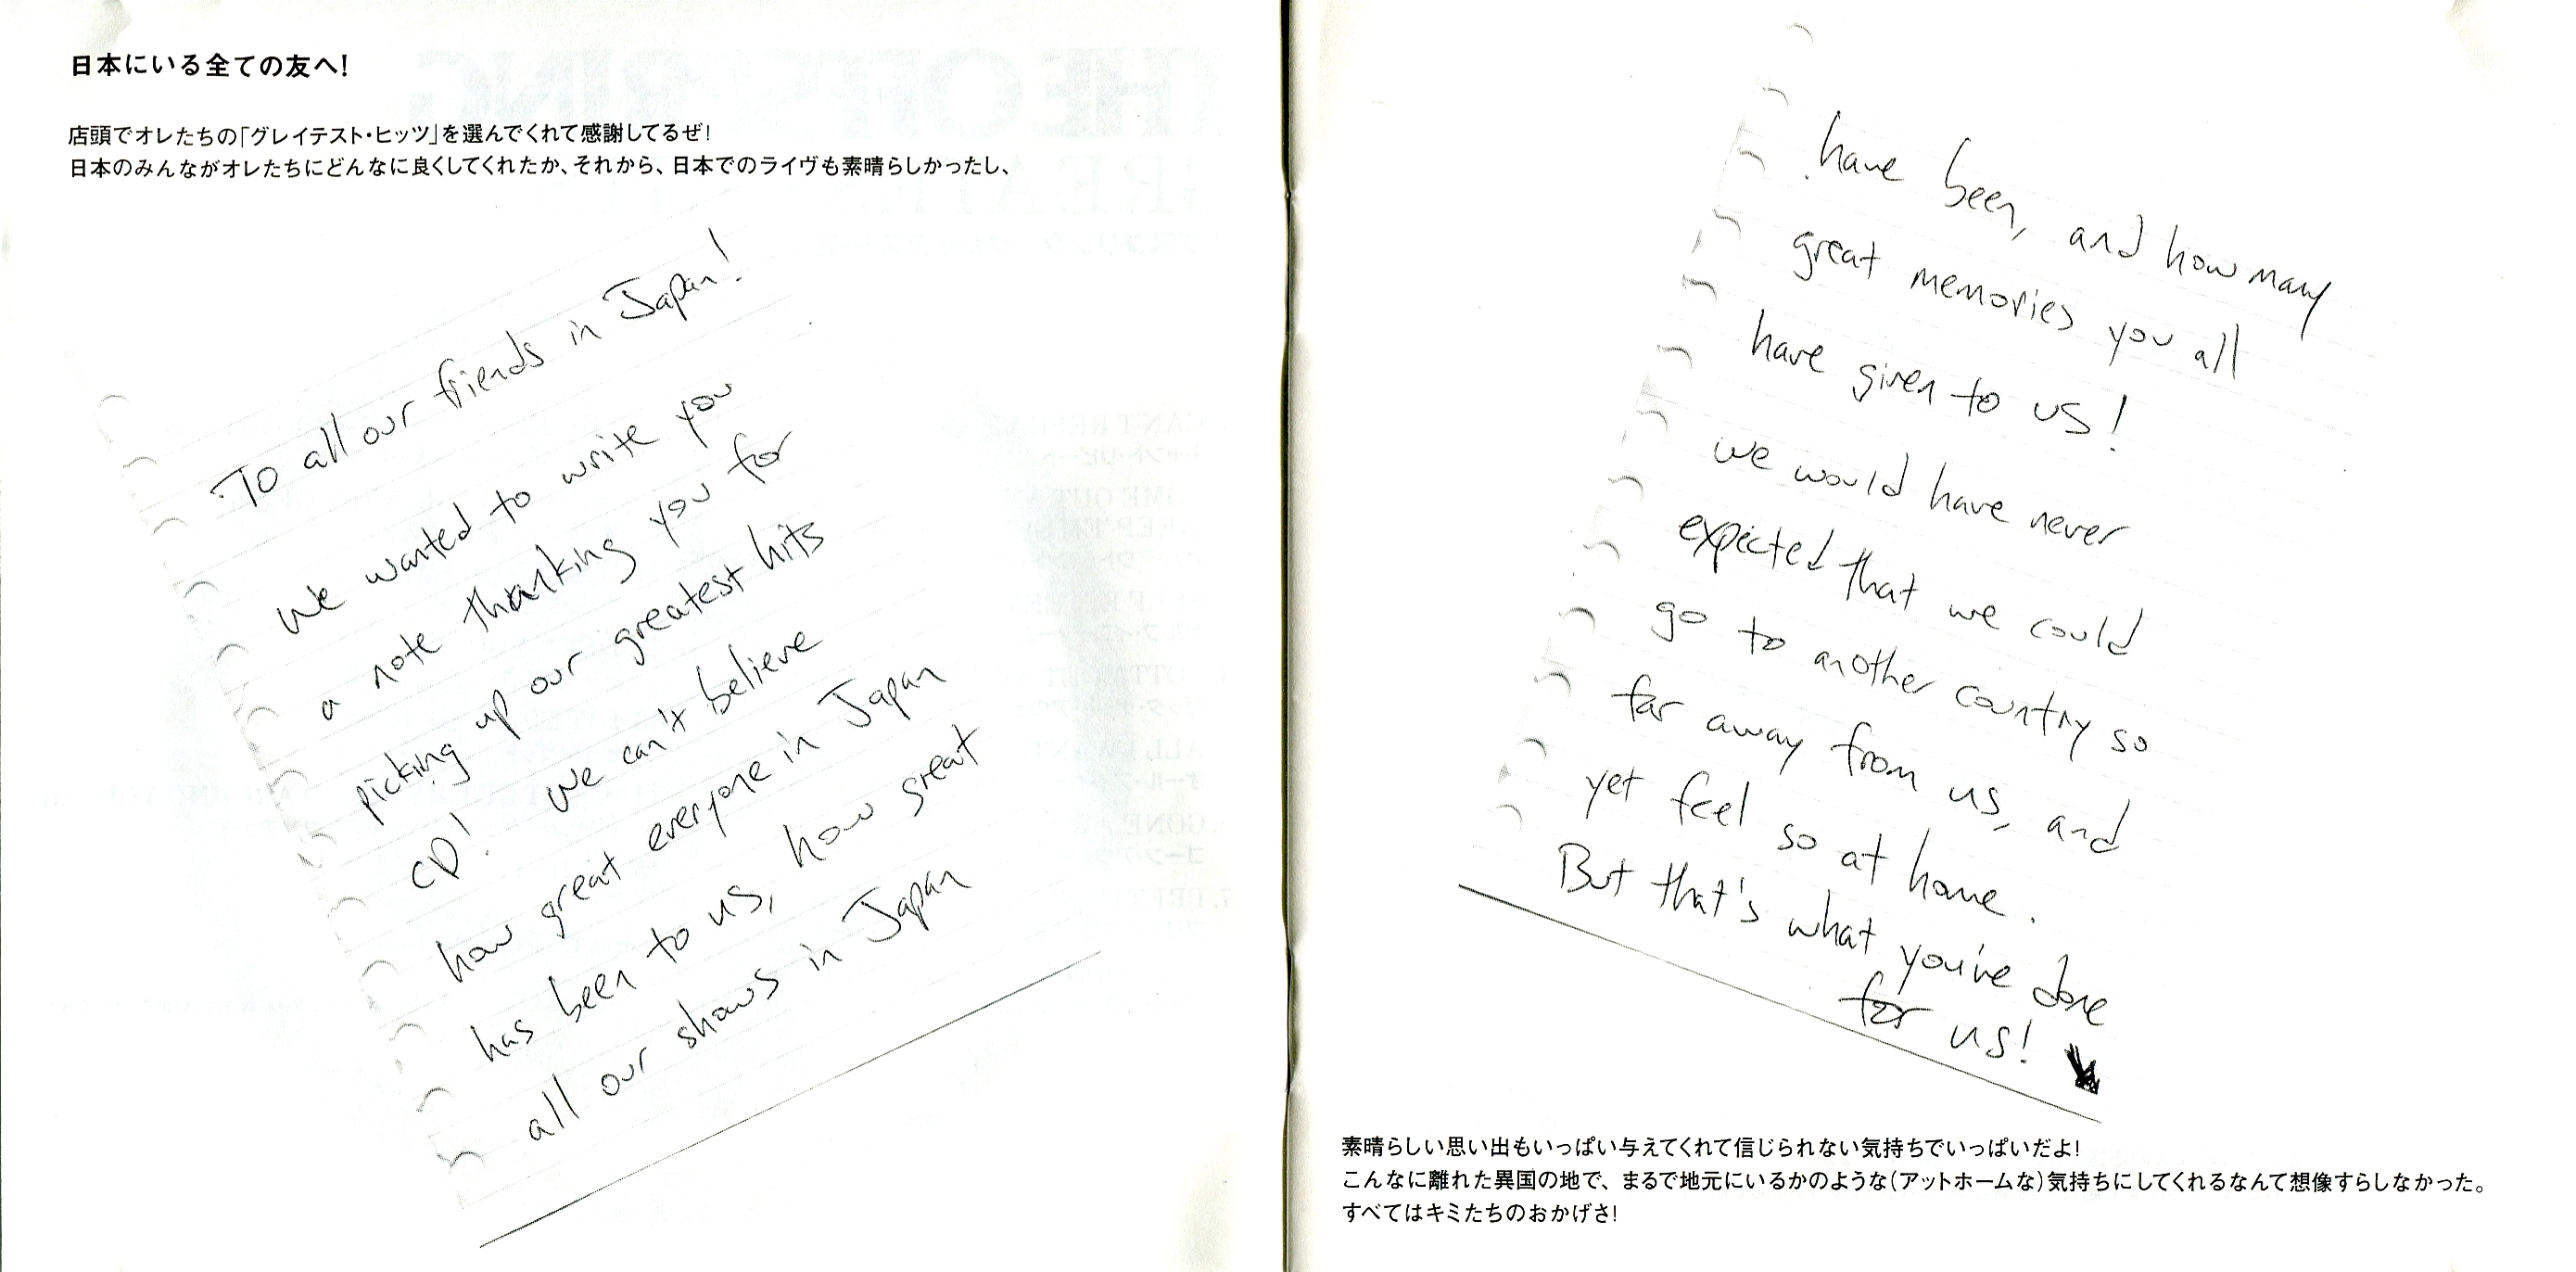 日本にいる全ての友へ!
店頭でオレたちの「グレイテスト・ヒッツ」を選んでくれて感謝してるぜ!
日本のみんながオレたちにどんなに良くしてくれたか、それから、日本でのライヴも素晴らしかったし、
To all our friends in Japan!
We wanted to write you
a note thanking you for
picking up our greatest hits
CD! We can't believe
how great everyone in Japan
has been to us, how great
all our shows in Japan
have been, and how many
great memories you all
have given to us!
We would have never
expected that we could
go to another country so
far away from us, and
yet feel so at home.
But that's what you've done
for us!
素晴らしい思い出もいっぱい与えてくれて信じられない気持ちでいっぱいだよ!
こんなに離れた異国の地で、まるで地元にいるかのような(アットホームな)気持ちにしてくれるなんて想像すらしなかった。
すべてはキミたちのおかげさ!